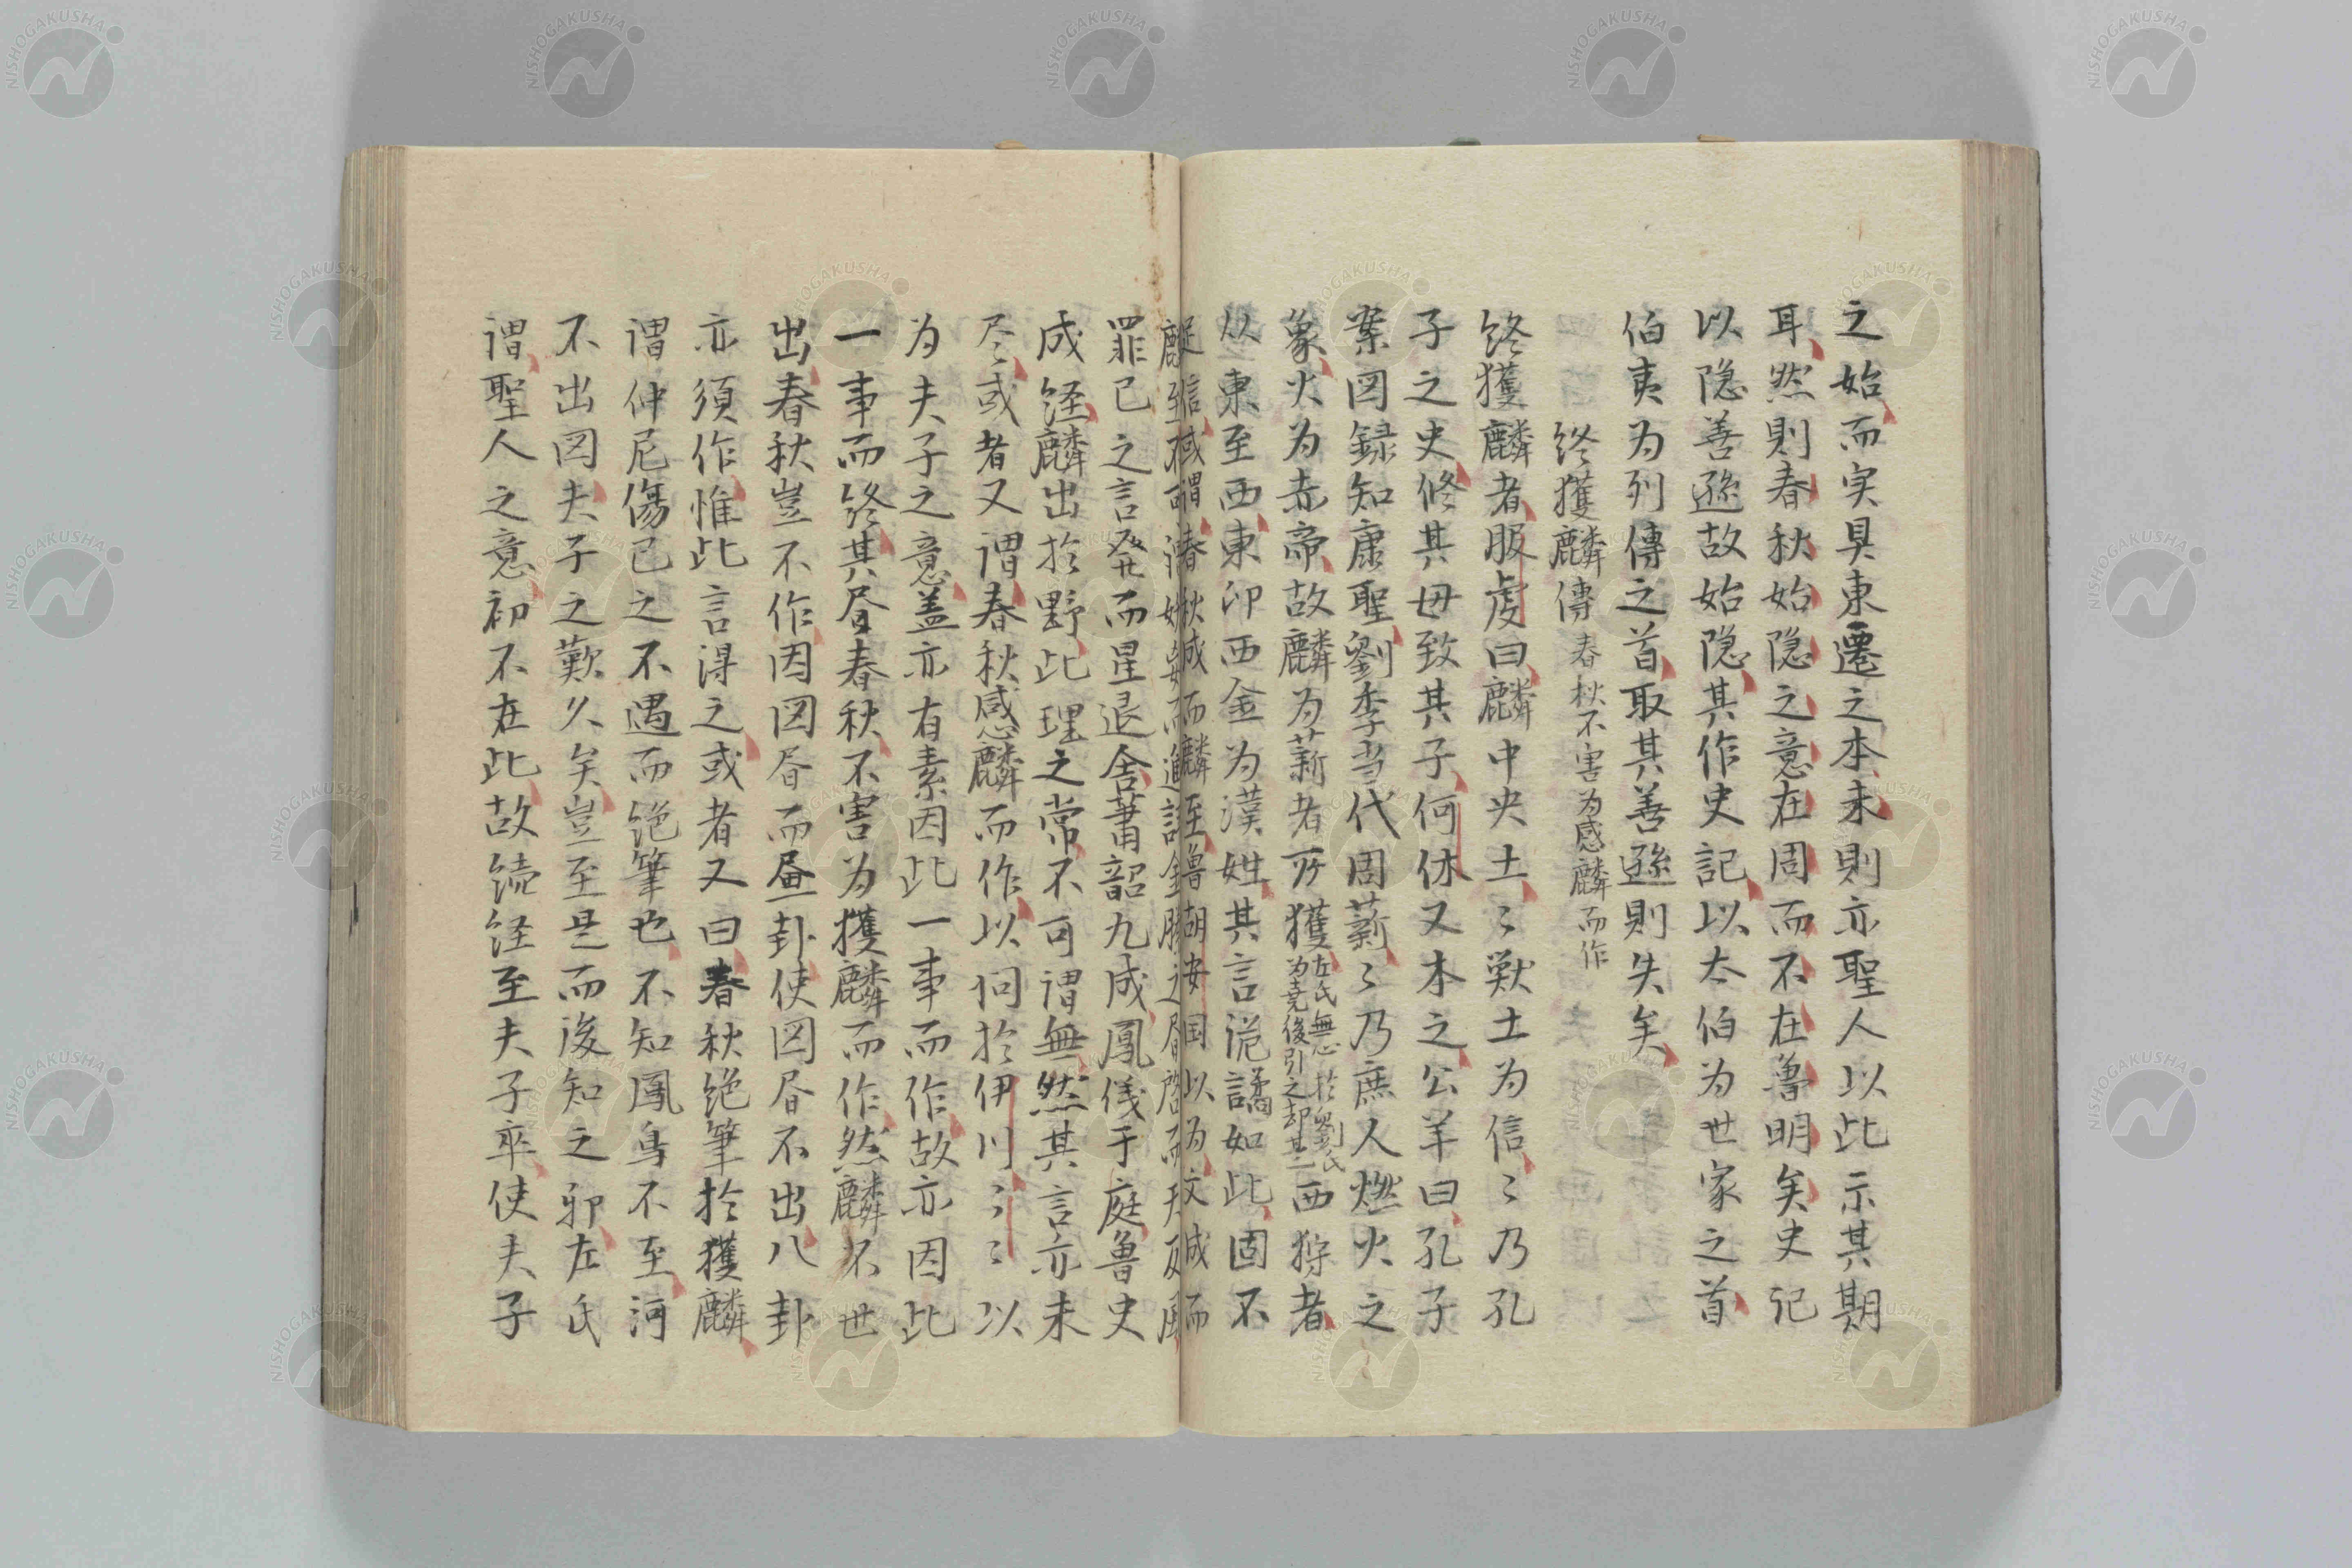 之始而実具東遷之本末則亦聖人以此示其期
耳然則春秋始隐之意在周而不在魯明矣史记
以隐善遜故始隐其作史記以太伯为世家之首
伯夷为列傳之首取其善遜則失矣
终獲麟傳 春秋不害为感麟而作
终獲麟者服虔曰麟中央土〻獣土为信〻乃孔
子之史修其母致其子何休又本之公羊曰孔子
案図録知庶聖劉季当代周薪〻乃庶人燃火之
象火为赤帝故麟为薪者所獲左氏無心於劉氏为堯後引之却其二西狩者
从東至西東卯西金为漢姓其言詭譎如此固不
足信春秋成而麟至魯胡安国以为文成而
麟至
罪已之言発而星退舎蕭韶九成鳳儀于庭魯史
成経麟出於野此理之常不可謂無然其言亦未
尽〻或者又謂春秋感麟而作以问於伊川〻〻以
为夫子之意盖亦有素因此一事而作故亦因此
一事而终其昼春秋不害为獲麟而作然麟不世
出春秋豈不作因図昼而畫卦使図昼不出八卦
亦須作惟此言得之或者又曰春秋绝筆於獲麟
謂仲尼傷已之不遇而绝筆也不知鳳鳥不至河
不出図夫子之歎久矣豈至是而後知之邪左氏
謂聖人之意初不在此故続経至夫子卒使夫子
NISHOGAKUSHA